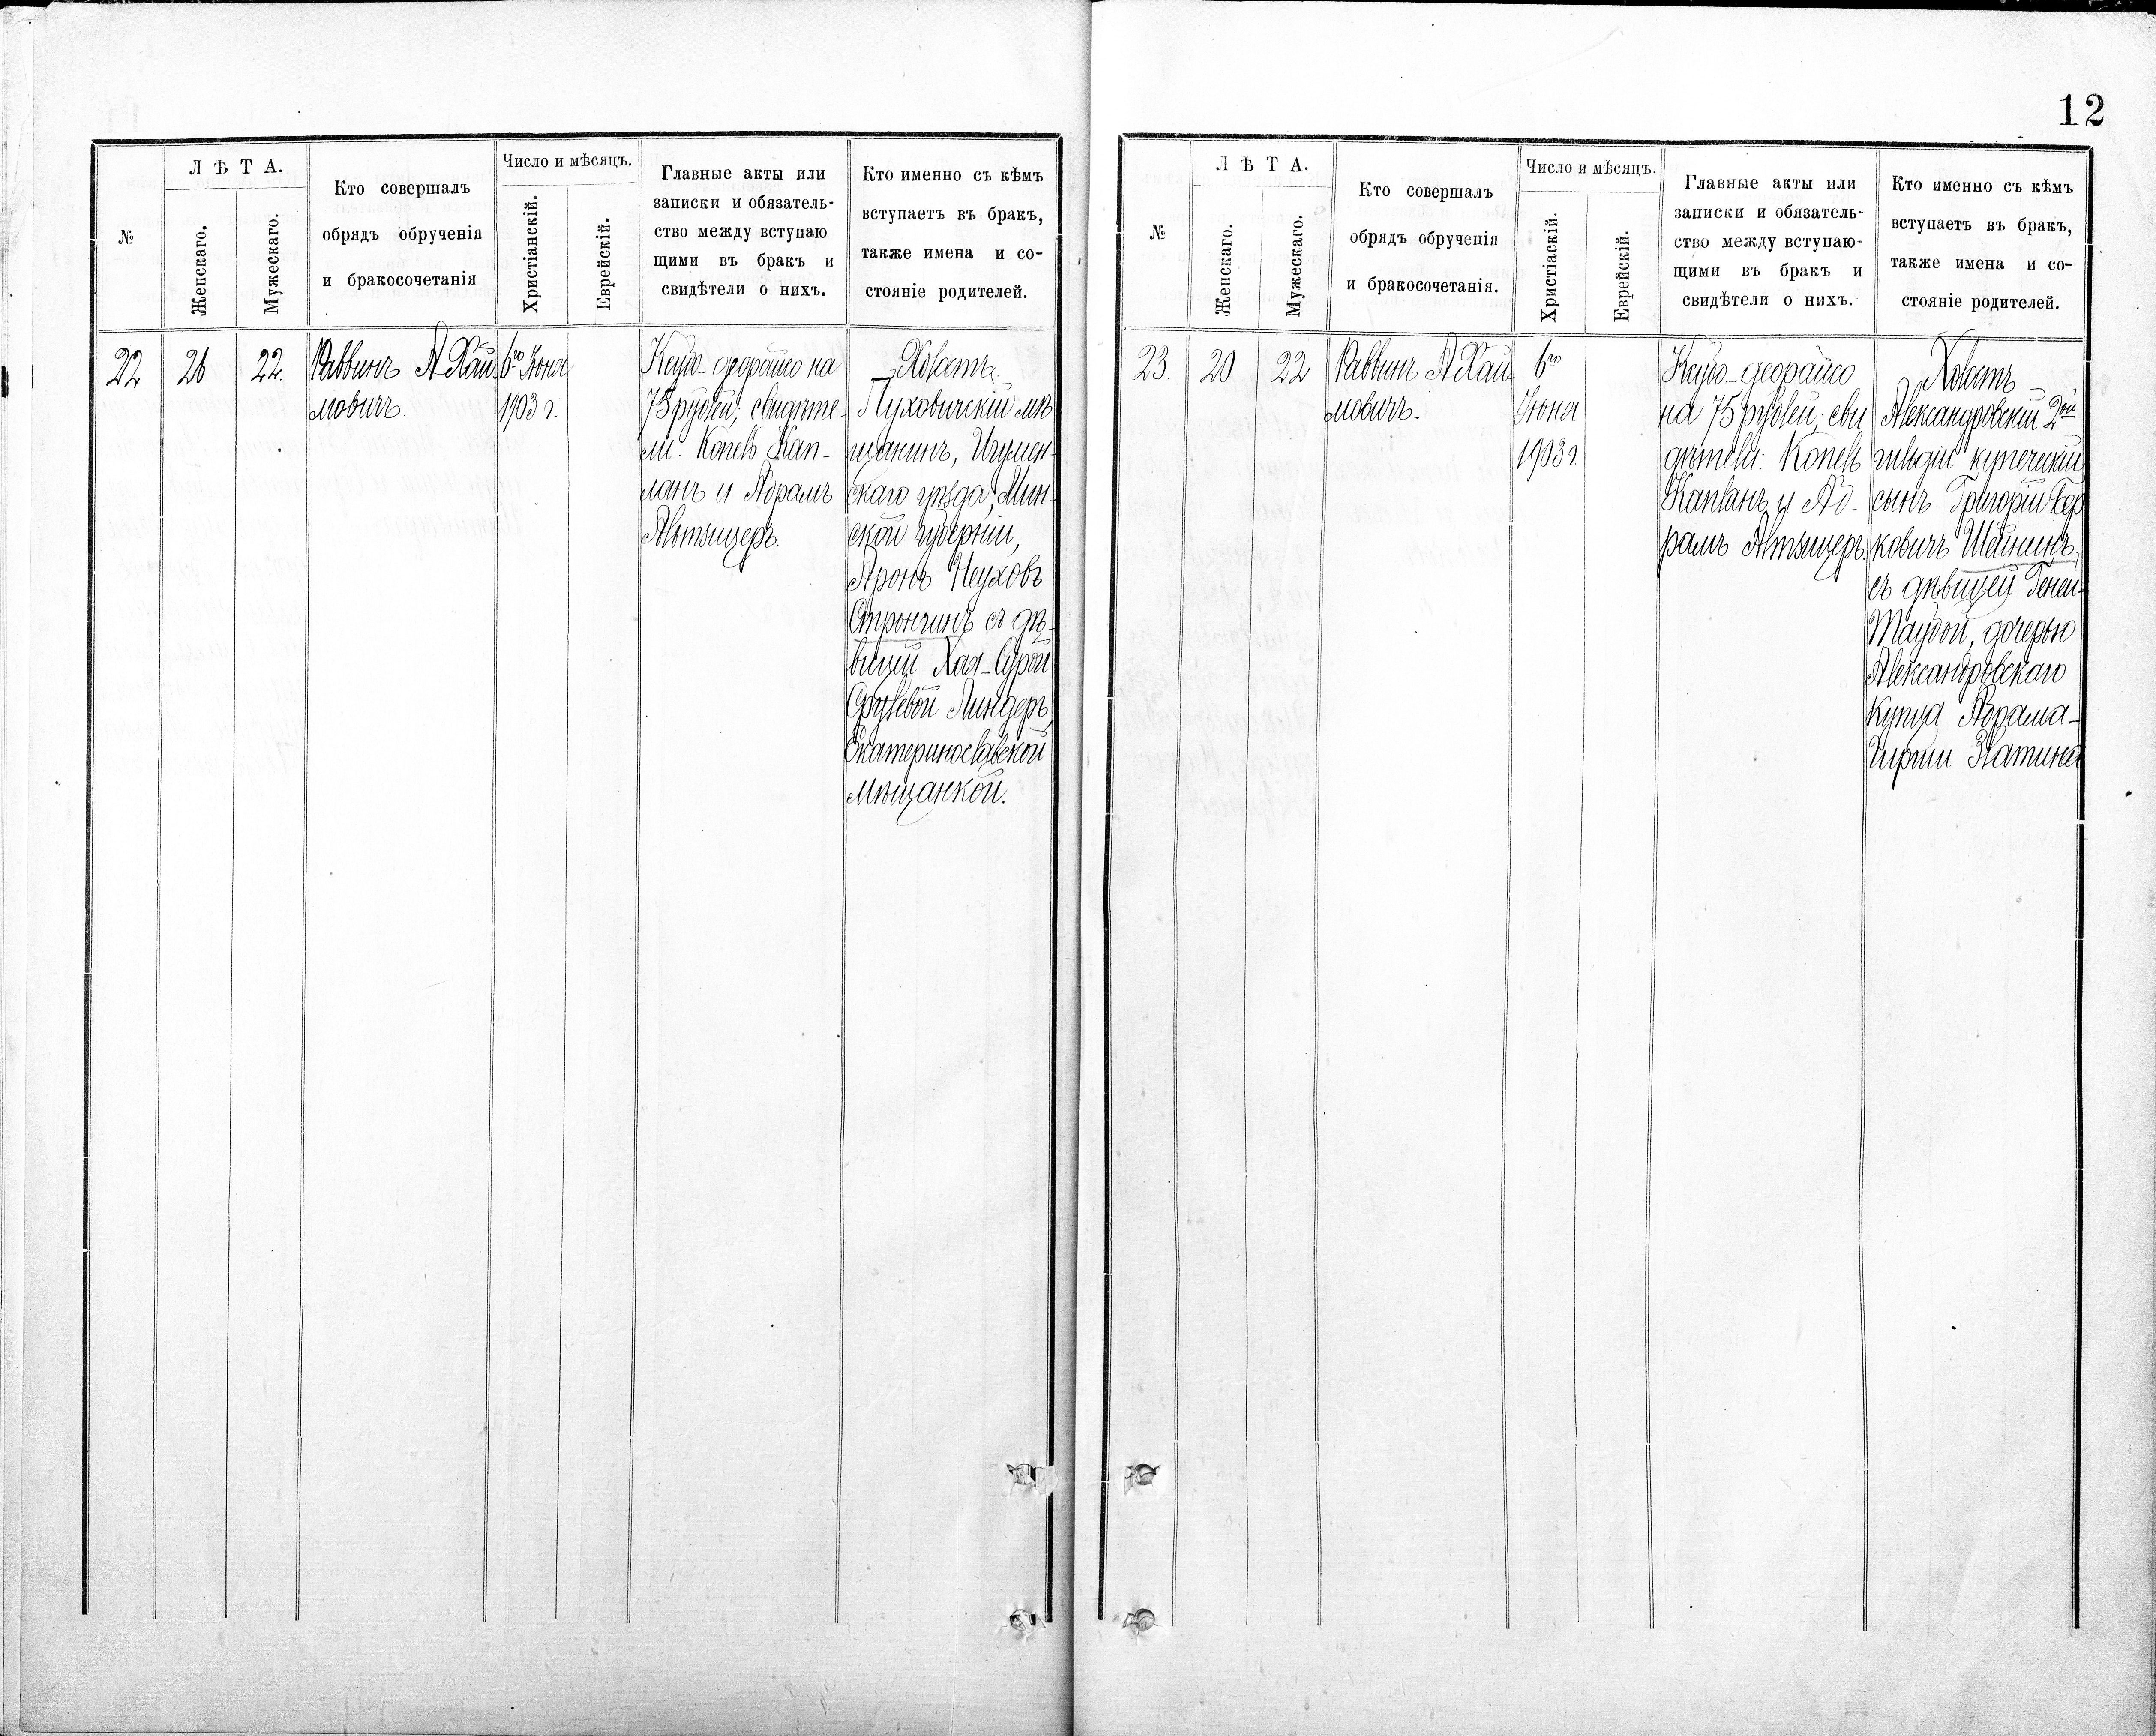 12
№
Л Ѣ Т А.
Женскаго.
Мужескаго.
Кто совершалъ
обрядъ обрученія
и бракосочетанія
Число и мѣсяцъ.
Христіанскій.
Еврейскій.
Главные акты или
записки и обязатель-
ство между вступаю
щими въ бракъ и
свидѣтели о нихъ.
Кто именно съ кѣмъ
вступаетъ въ бракъ,
также имена и со-
стояніе родителей.
22
26
22.
Раввинъ А Хай
мовичъ.
6го Іюня
1903 г.
на
75 рублей; свидѣте-
ли: Копелъ Кап-
ланъ и Абрамъ
Альтшулеръ.
Холостъ
Пуховичскій мѣ
щанинъ, Игумен-
скаго уѣзда, Мин-
ской губерніи,
Аронъ
Стронгинъ съ дѣ-
вицей Хая-Сурой
Линдеръ,
Екатеринославской
мѣщанкой.
№
Л Ѣ Т А.
Женскаго.
Мужескаго.
Кто совершалъ
обрядъ обрученія
и бракосочетанія.
Число и мѣсяцъ.
Христіаскій.
Еврейскій.
Главные акты или
записки и обязатель-
ство между вступаю-
щими въ бракъ и
свидѣтели о нихъ.
Кто именно съ кѣмъ
вступаетъ въ бракъ,
также имена и со-
стояніе родителей.
23.
20
22
Раввинъ А Хай
мовичъ.
6го
Іюня
1903 г.
на 75 рублей; сви
дѣтели: Копелъ
Капланъ и Аб-
рамъ Альтшулеръ.
Холостъ
Александровскій 2ой
гильдіи купеческій
сынъ Григорій Бер
ковичъ Шейнинъ,
съ дѣвицей Геней-
Таубой, дочерью
Александровскаго
купца Абрама-
Гирши Златина